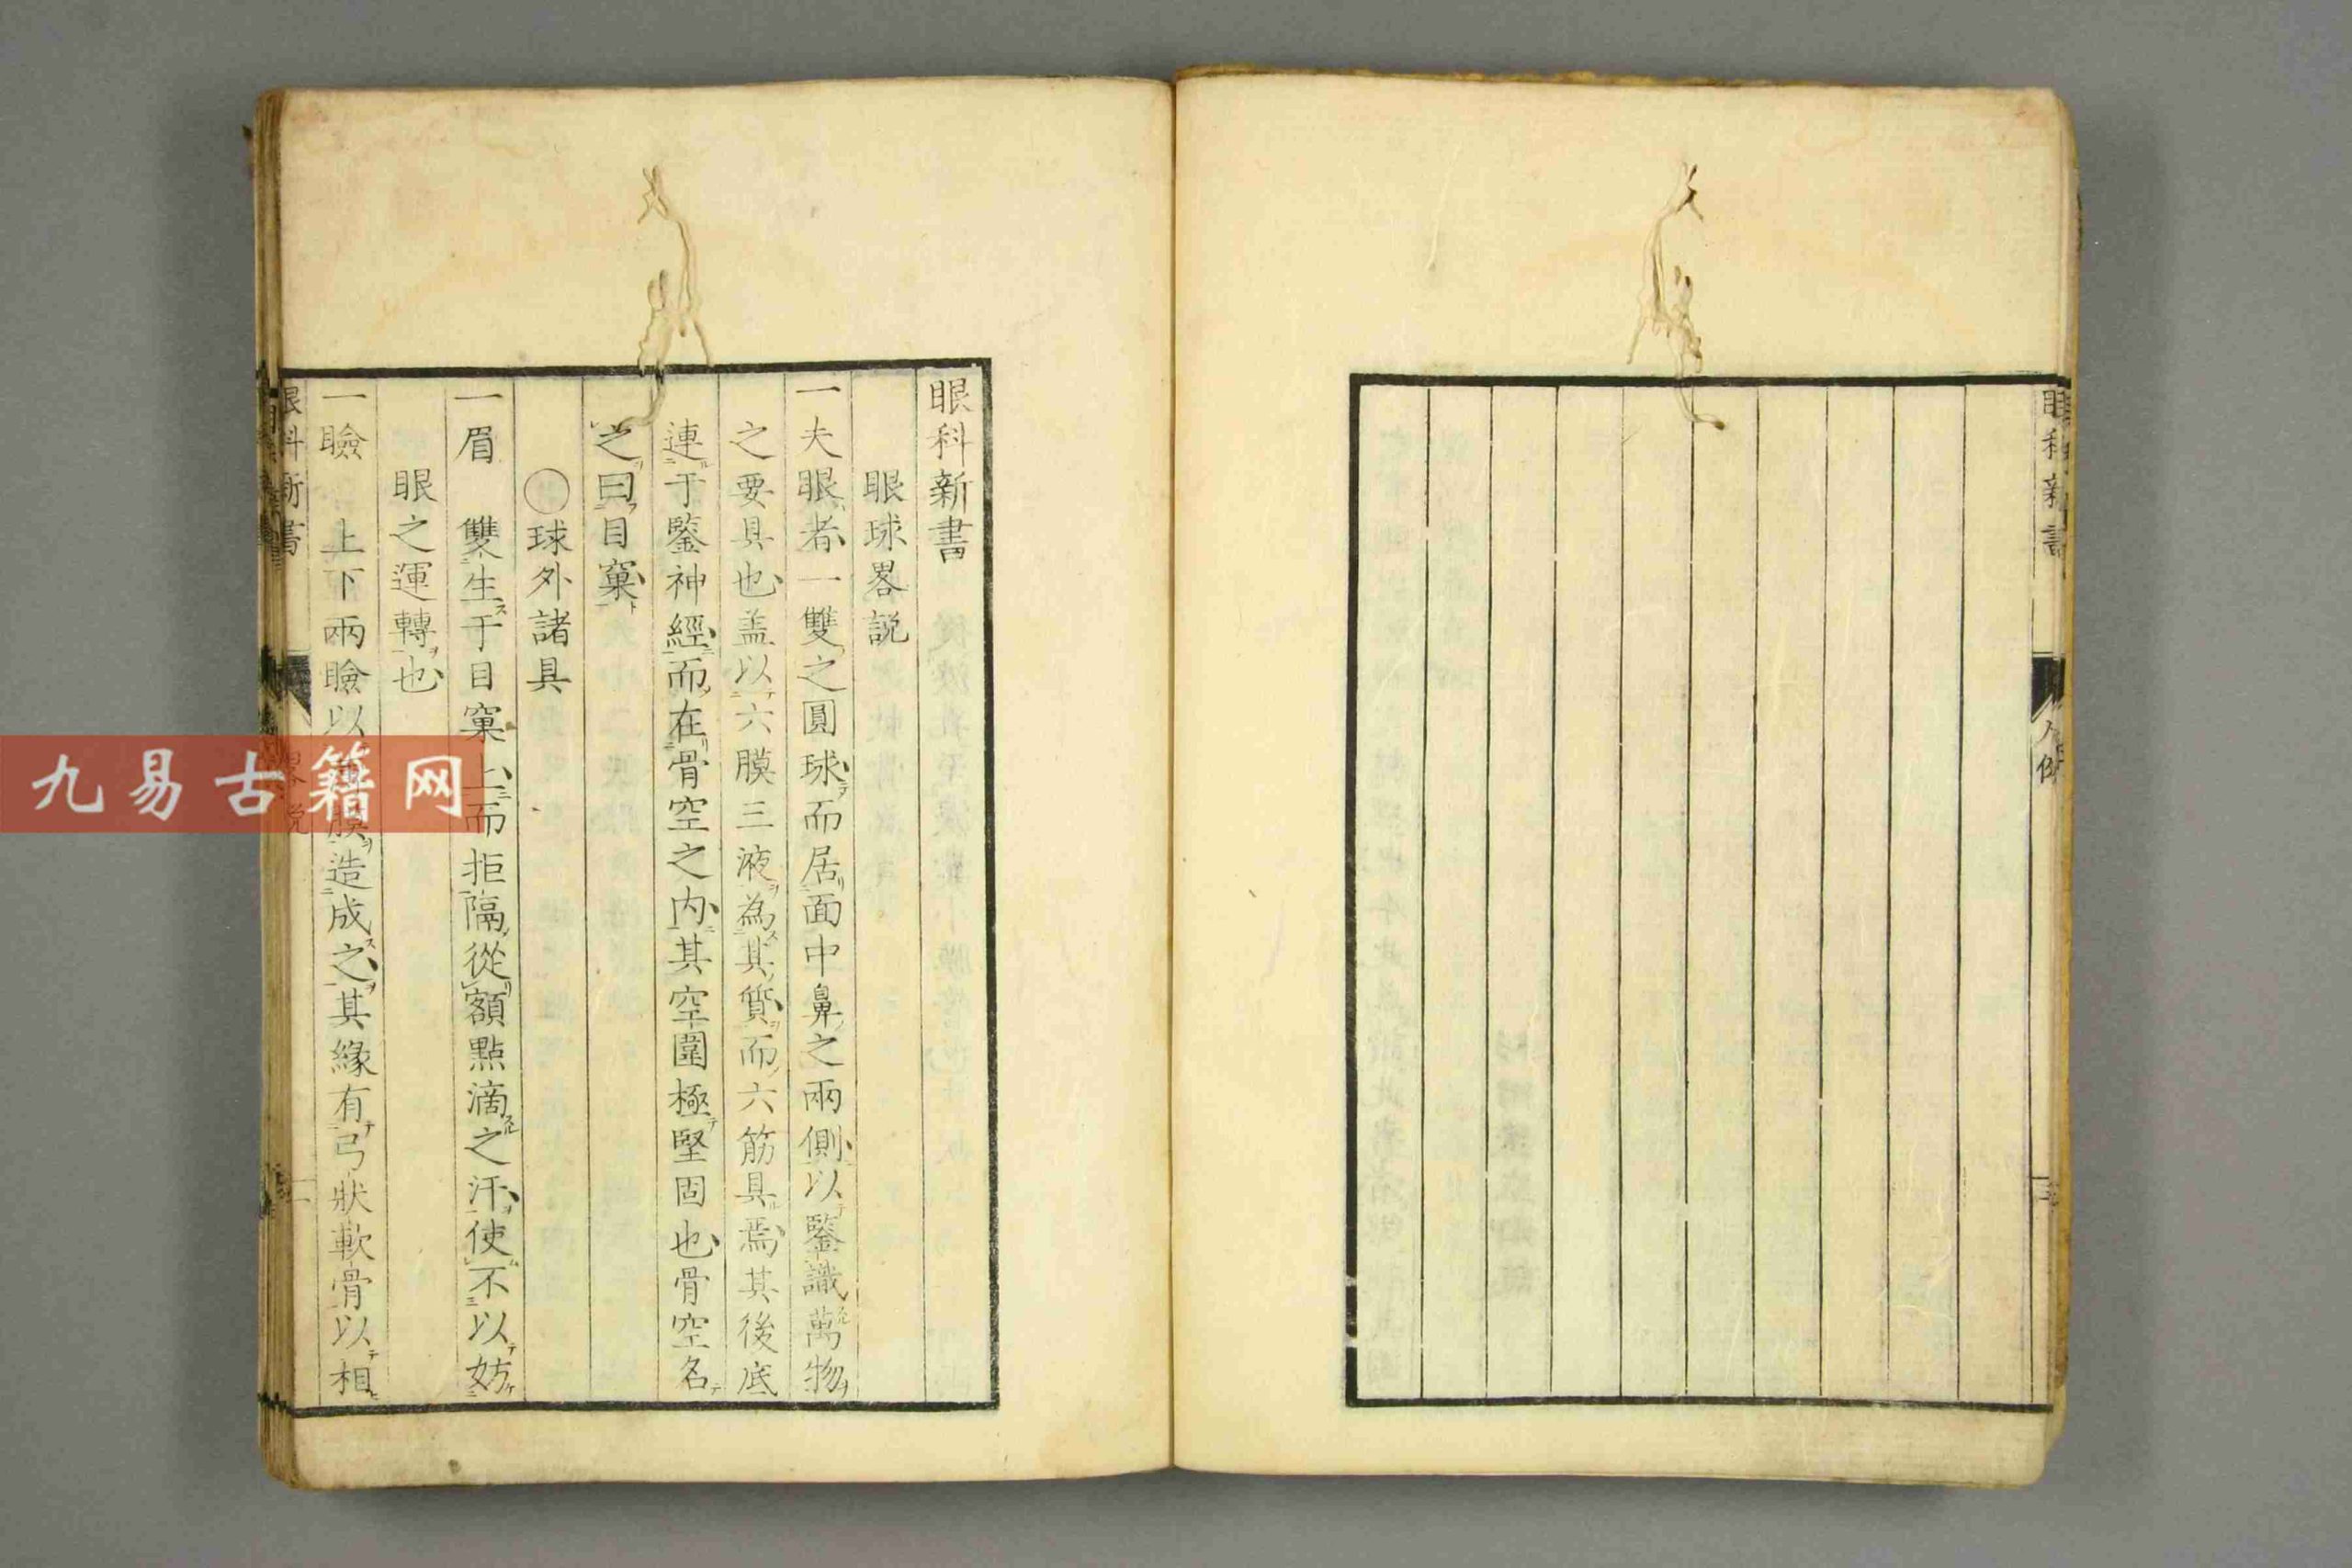 眼科新書
凡例
眼科新書
眼球畧説
一夫眼者一雙之圓球而居面中鼻之兩側以鑒識萬物
之要具也盖以六膜三液為其質而六筋具焉其後底
連于鑒神經而在骨空之内其空圍極堅固也骨空名
之曰目窠
○球外諸具
一眉 雙生于目窠上而拒隔從額點滴之汗使不以妨
眼之運轉也
一瞼 上下兩瞼以膜造成之其緣有弓狀軟骨以相
眼科新書
畧説
一
九易古籍网